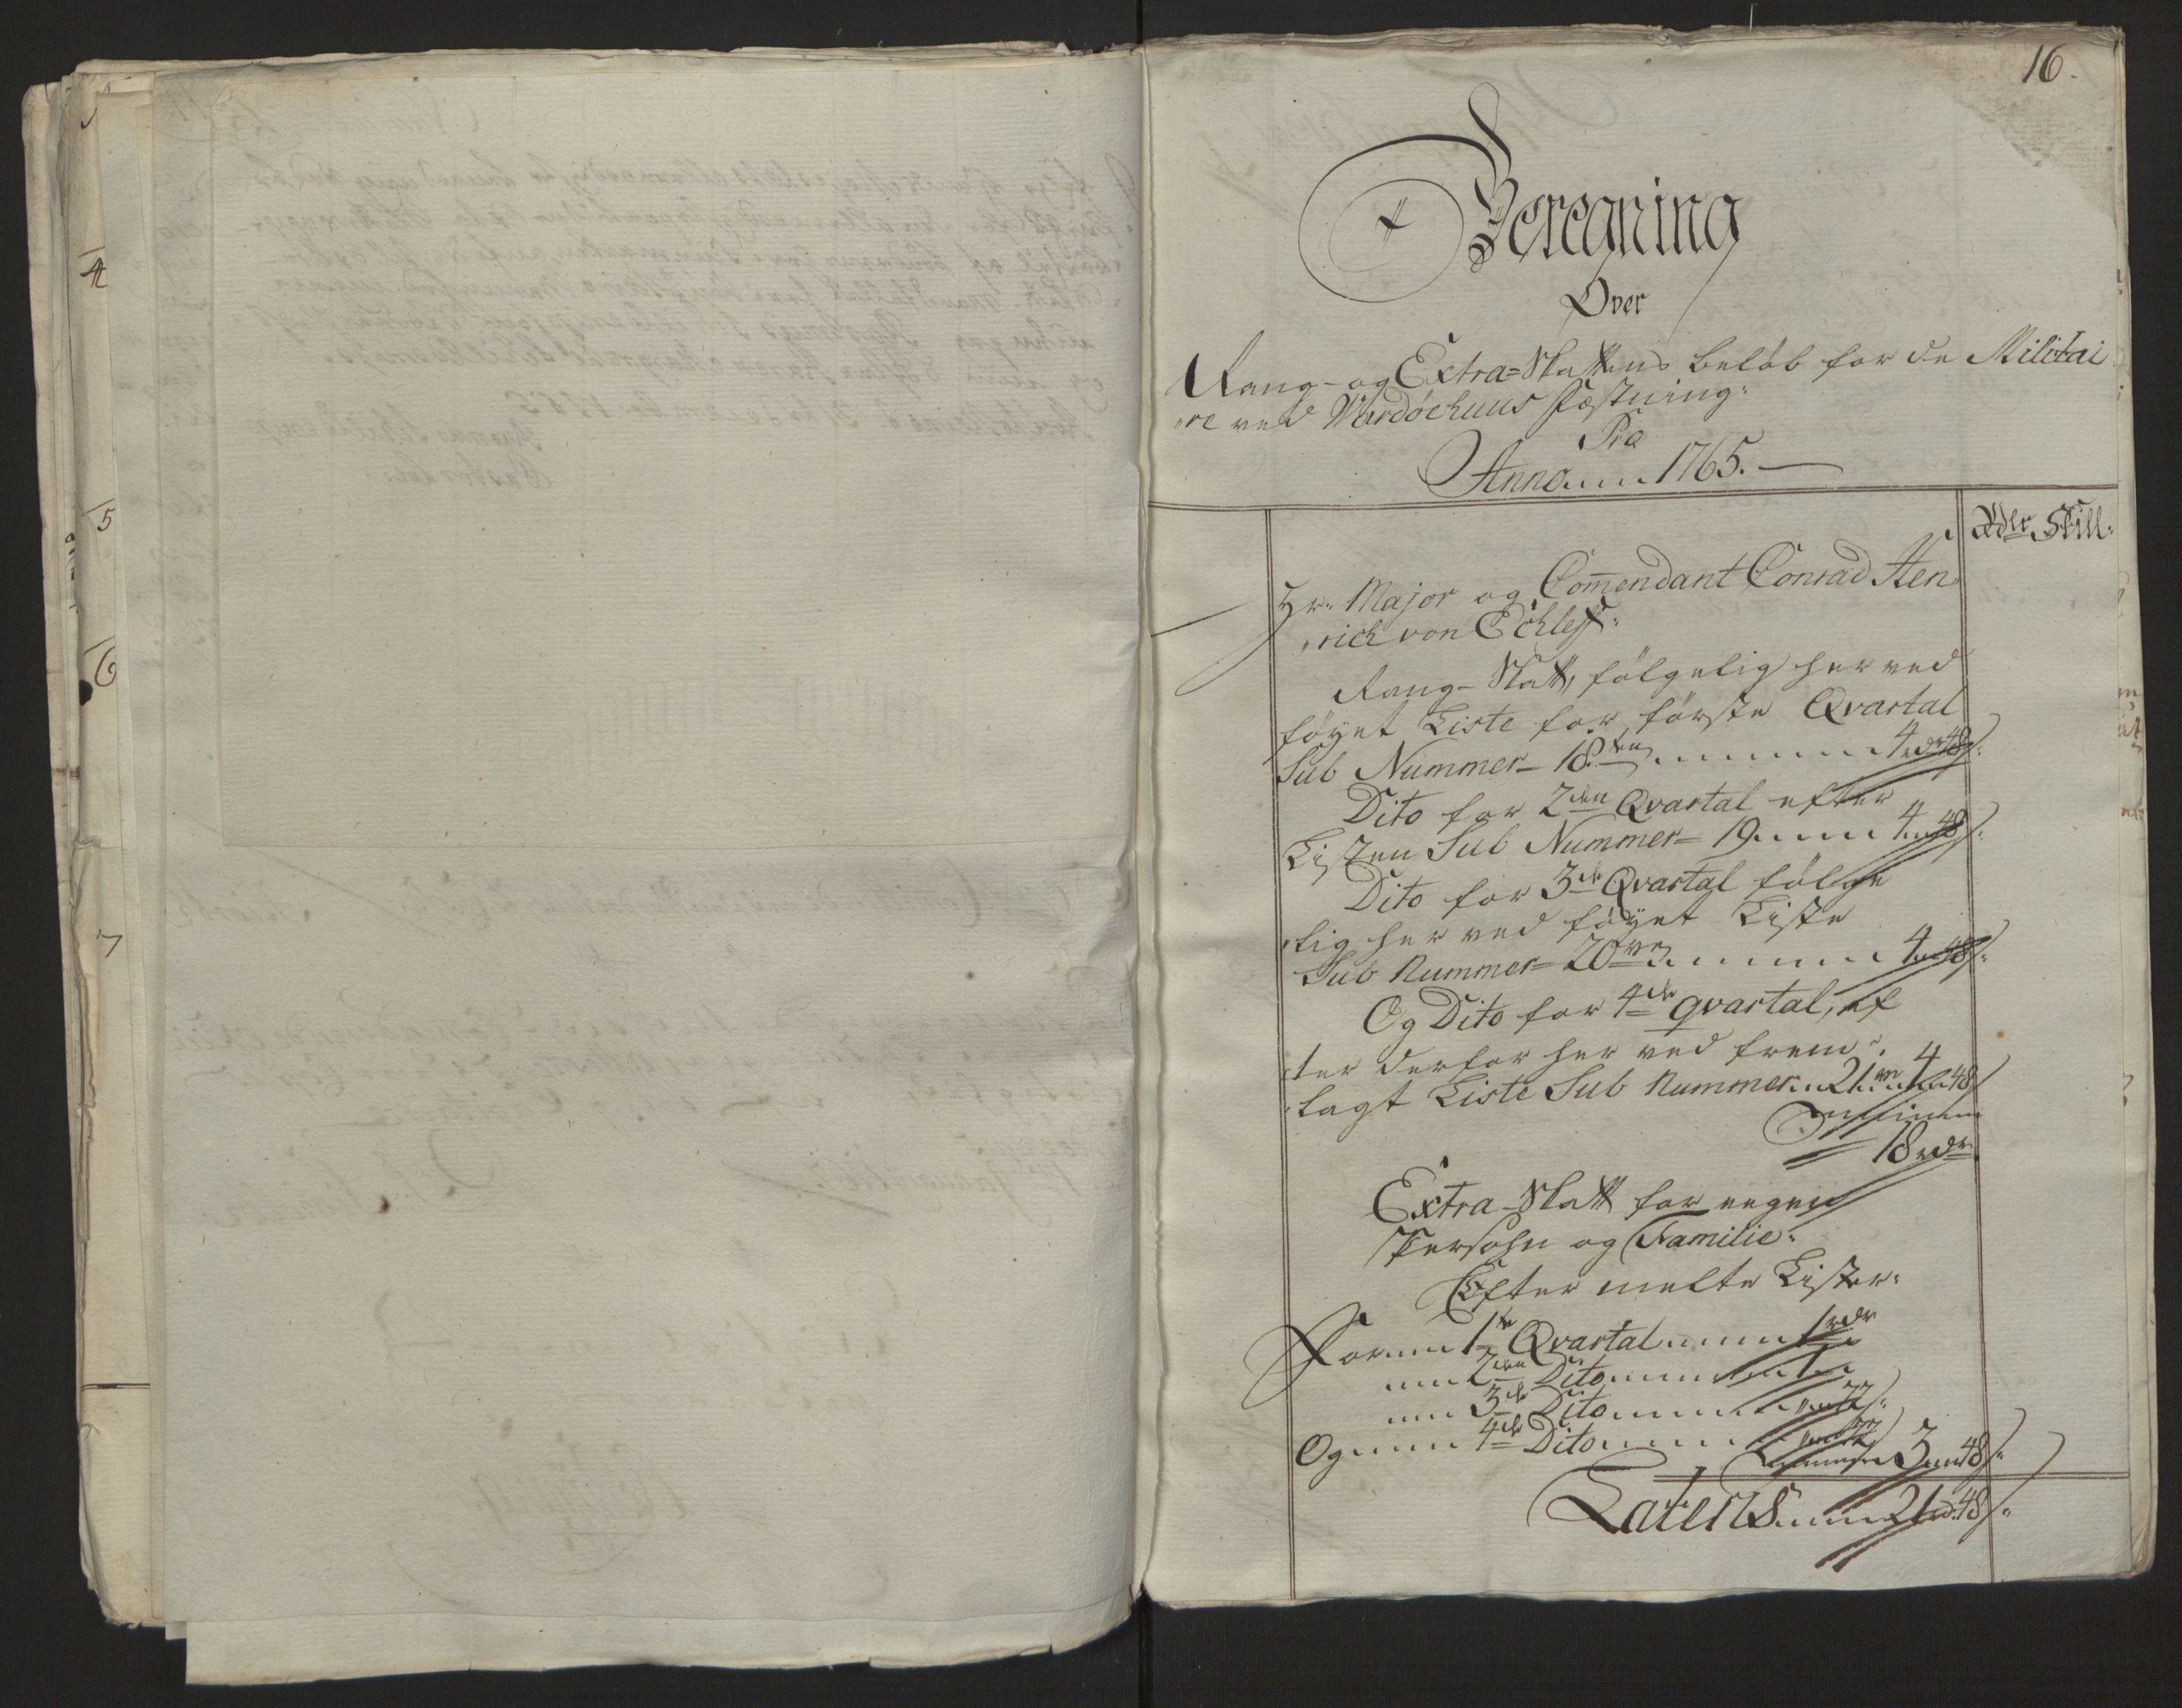 16.
Beregning
Over
Rang- og Extra-Skattens beløb for de Militai
re ved Wardöehuus Fæstning:
Pro
Anno 1765.
Rdlr Skill:
Hr. Major og Commendant Conrad Hen
rich von Echleff:
Rang-Skatt, følgelig her ved
føyet Liste for første Qvartal
Sub Nummer 18ten 4 rdr 48 s:
Dito for 2den Qvartal efter
Listen Sub Nummer 19 4 48 s:
Dito for 3de Qvartal følge
lig her ved føyet Liste
Sub Nummer 20ve 4 48 s:
Og Dito for 4de qvartal, ef
ter derfor her ved frem
lagt Liste Sub Nummer 21 4 48 s
18 rdr
Extra-Skatt for eegen
Persohn og Familie:
Efter melte Lister:
For 1te Qvartal 1 rdr
2den Dito 1
3de Dito 72 s:
Og 4de Dito 72
3 48 s:
Latens 21 rd 48 s:
4
5
6
7